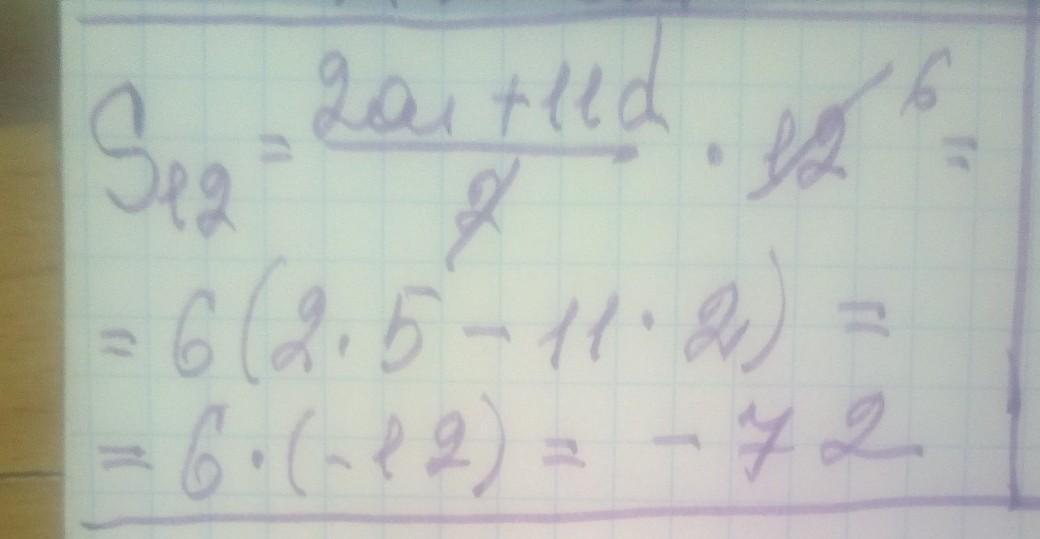 S₁₂ = (2a₁ + 11d)/2 · 12 6 =
= 6(2 · 5 - 11 · 2) =
= 6 · (-12) = - 72